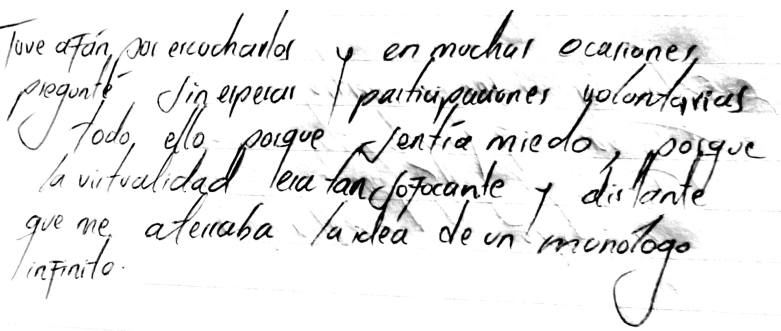 Tuve afán por escucharlos y en muchas ocasiones
pregunté sin esperar participaciones volontarias
todo ello porque sentía miedo, porque
la virtualidad era tan sofocante y distante
que me aterraba la idea de un monólogo
infinito.